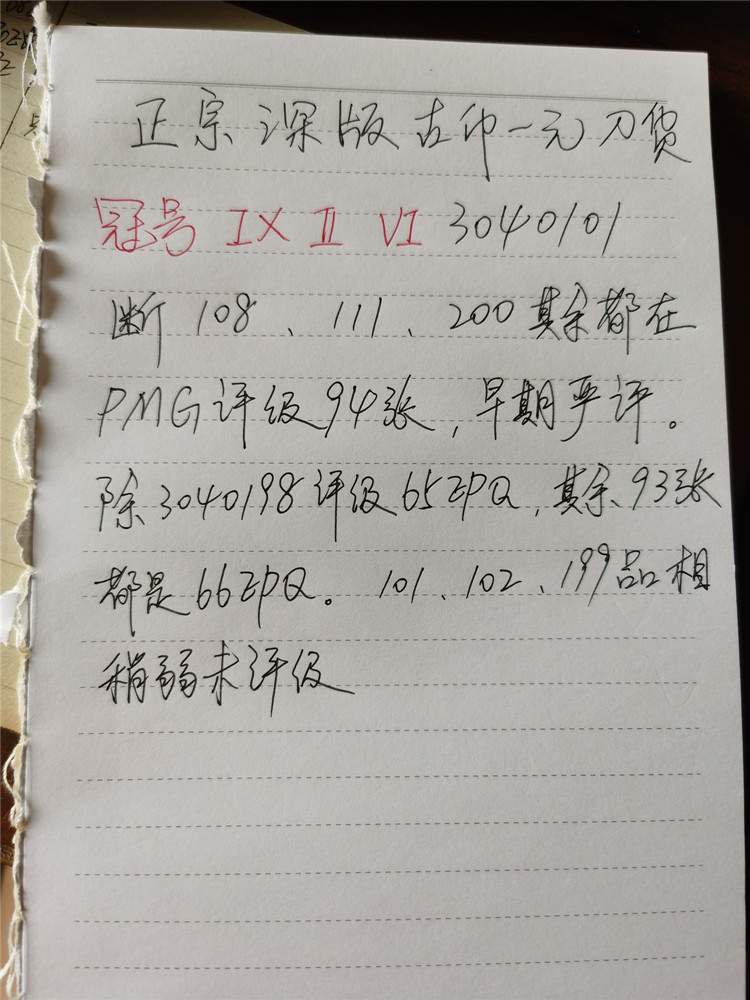 正宗深版古币一元刀货
冠号 IX II VI 3040101
断108、111、200其余都在
PMG评级94张,早期严评。
除3040198评级65EPQ,其余93张
都是66EPQ。101、102、199品相
稍弱未评级